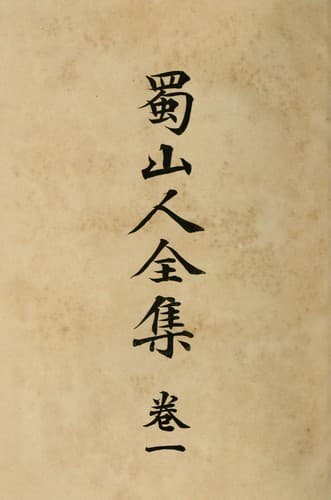 蜀山人全集 卷一